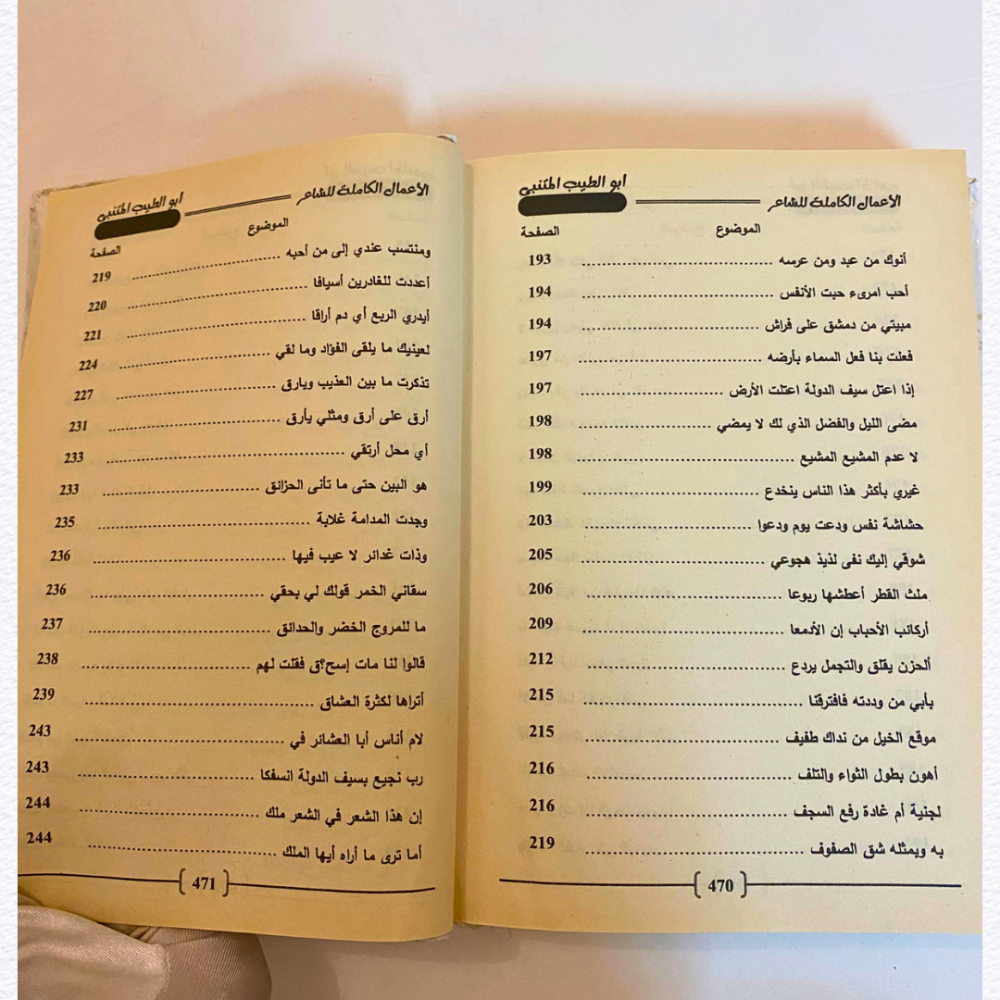 الأعمال الكاملة للشاعر أبو الطيب المتنبي
الموضوع الصفحة
أنوك من عبد ومن عرسه 193
أحب امرىء حبت الأنفس 194
مبيتي من دمشق على فراش 194
فعلت بنا فعل السماء بأرضه 197
إذا اعتل سيف الدولة اعتلت الأرض 197
مضى الليل والفضل الذي لك لا يمضي 198
لا عدم المشيع المشيع 198
غيري بأكثر هذا الناس ينخدع 199
حشاشة نفس ودعت يوم ودعوا 203
شوقي إليك نفى لذيذ هجوعي 205
ملث القطر أعطشها ربوعا 206
أركائب الأحباب إن الأدمعا 209
ألحزن يقلق والتجمل يردع 212
بأبي من وددته فافترقنا 215
موقع الخيل من نداك طفيف 215
أهون بطول الثواء والتلف 216
لجنية أم غادة رفع السجف 216
به وبمثله شق الصفوف 219
470
الأعمال الكاملة للشاعر أبو الطيب المتنبي
الموضوع الصفحة
ومنتسب عندي إلى من أحبه 219
أعددت للغادرين أسيافا 220
أيدري الربع أي دم أراقا 221
لعينيك ما يلقى الفؤاد وما لقي 224
تذكرت ما بين العذيب وبارق 227
أرق على أرق ومثلي يأرق 231
أي محل أرتقي 233
هو البين حتى ما تأنى الحزائق 233
وجدت المدامة غلابة 235
وذات غدائر لا عيب فيها 236
سقاني الخمر قولك لي بحقي 236
ما للمروج الخضر والحدائق 237
قالوا لنا مات إسح؟ق فقلت لهم 238
أتراها لكثرة العشاق 239
لام أناس أبا العشائر في 243
رب نجيع بسيف الدولة انسفكا 243
إن هذا الشعر في الشعر ملك 244
أما ترى ما أراه أيها الملك 244
471